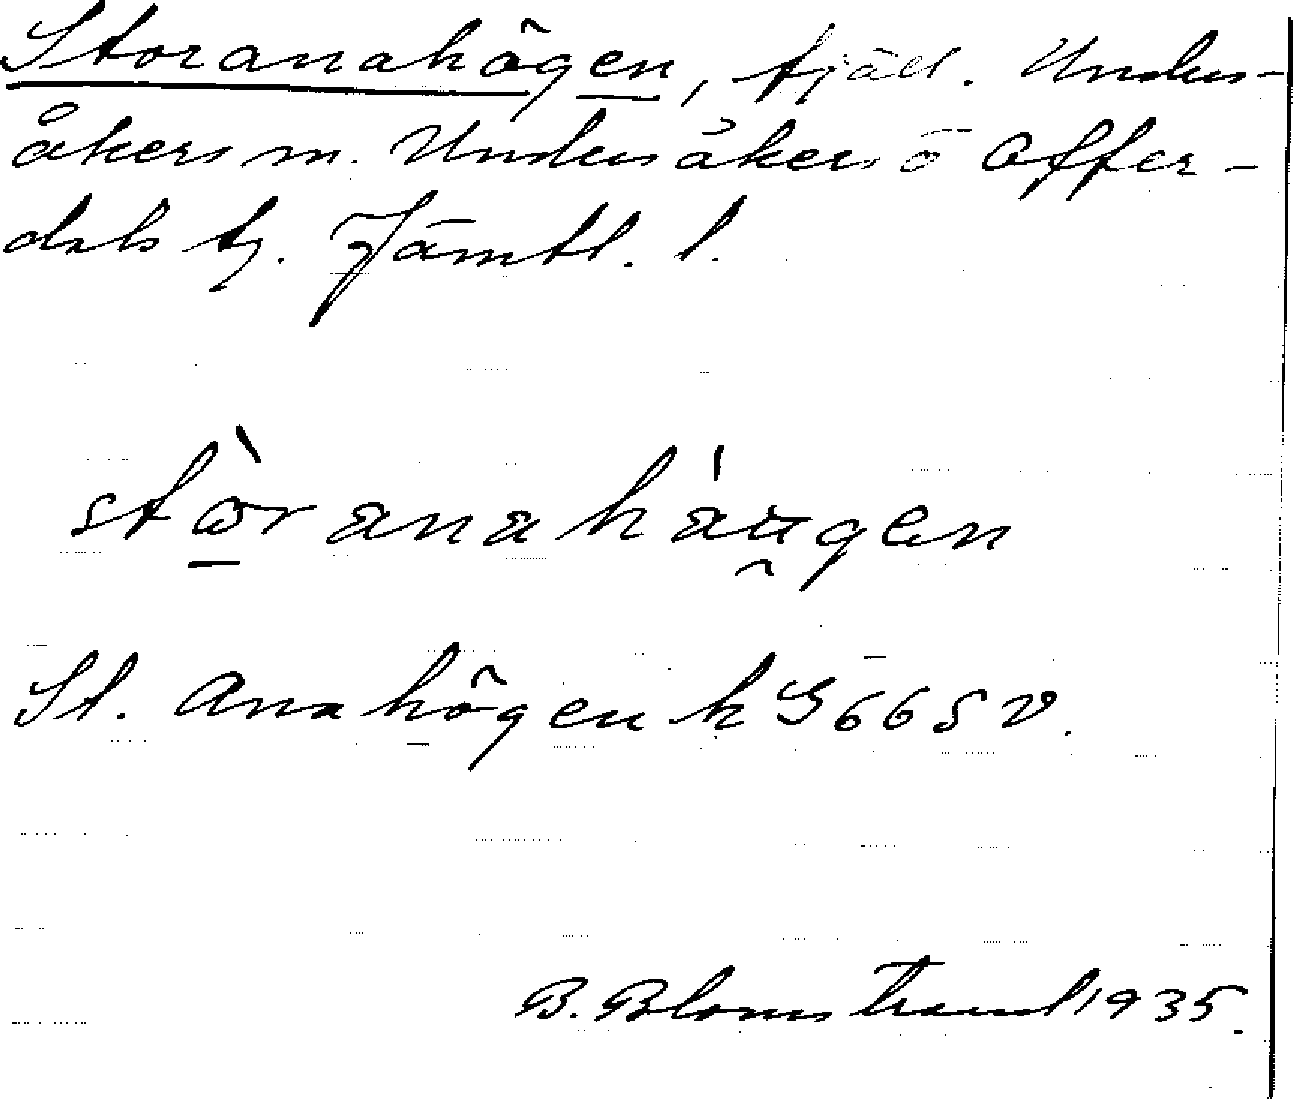 Storanahögen, fjäll. Unders-
åkers sn. Undersåkers o Offer-
dals tg. Jämtl. l.
stòranaháu̯gen
St. Anahögen k G 66 S V.
B. Blomstrand 1935.